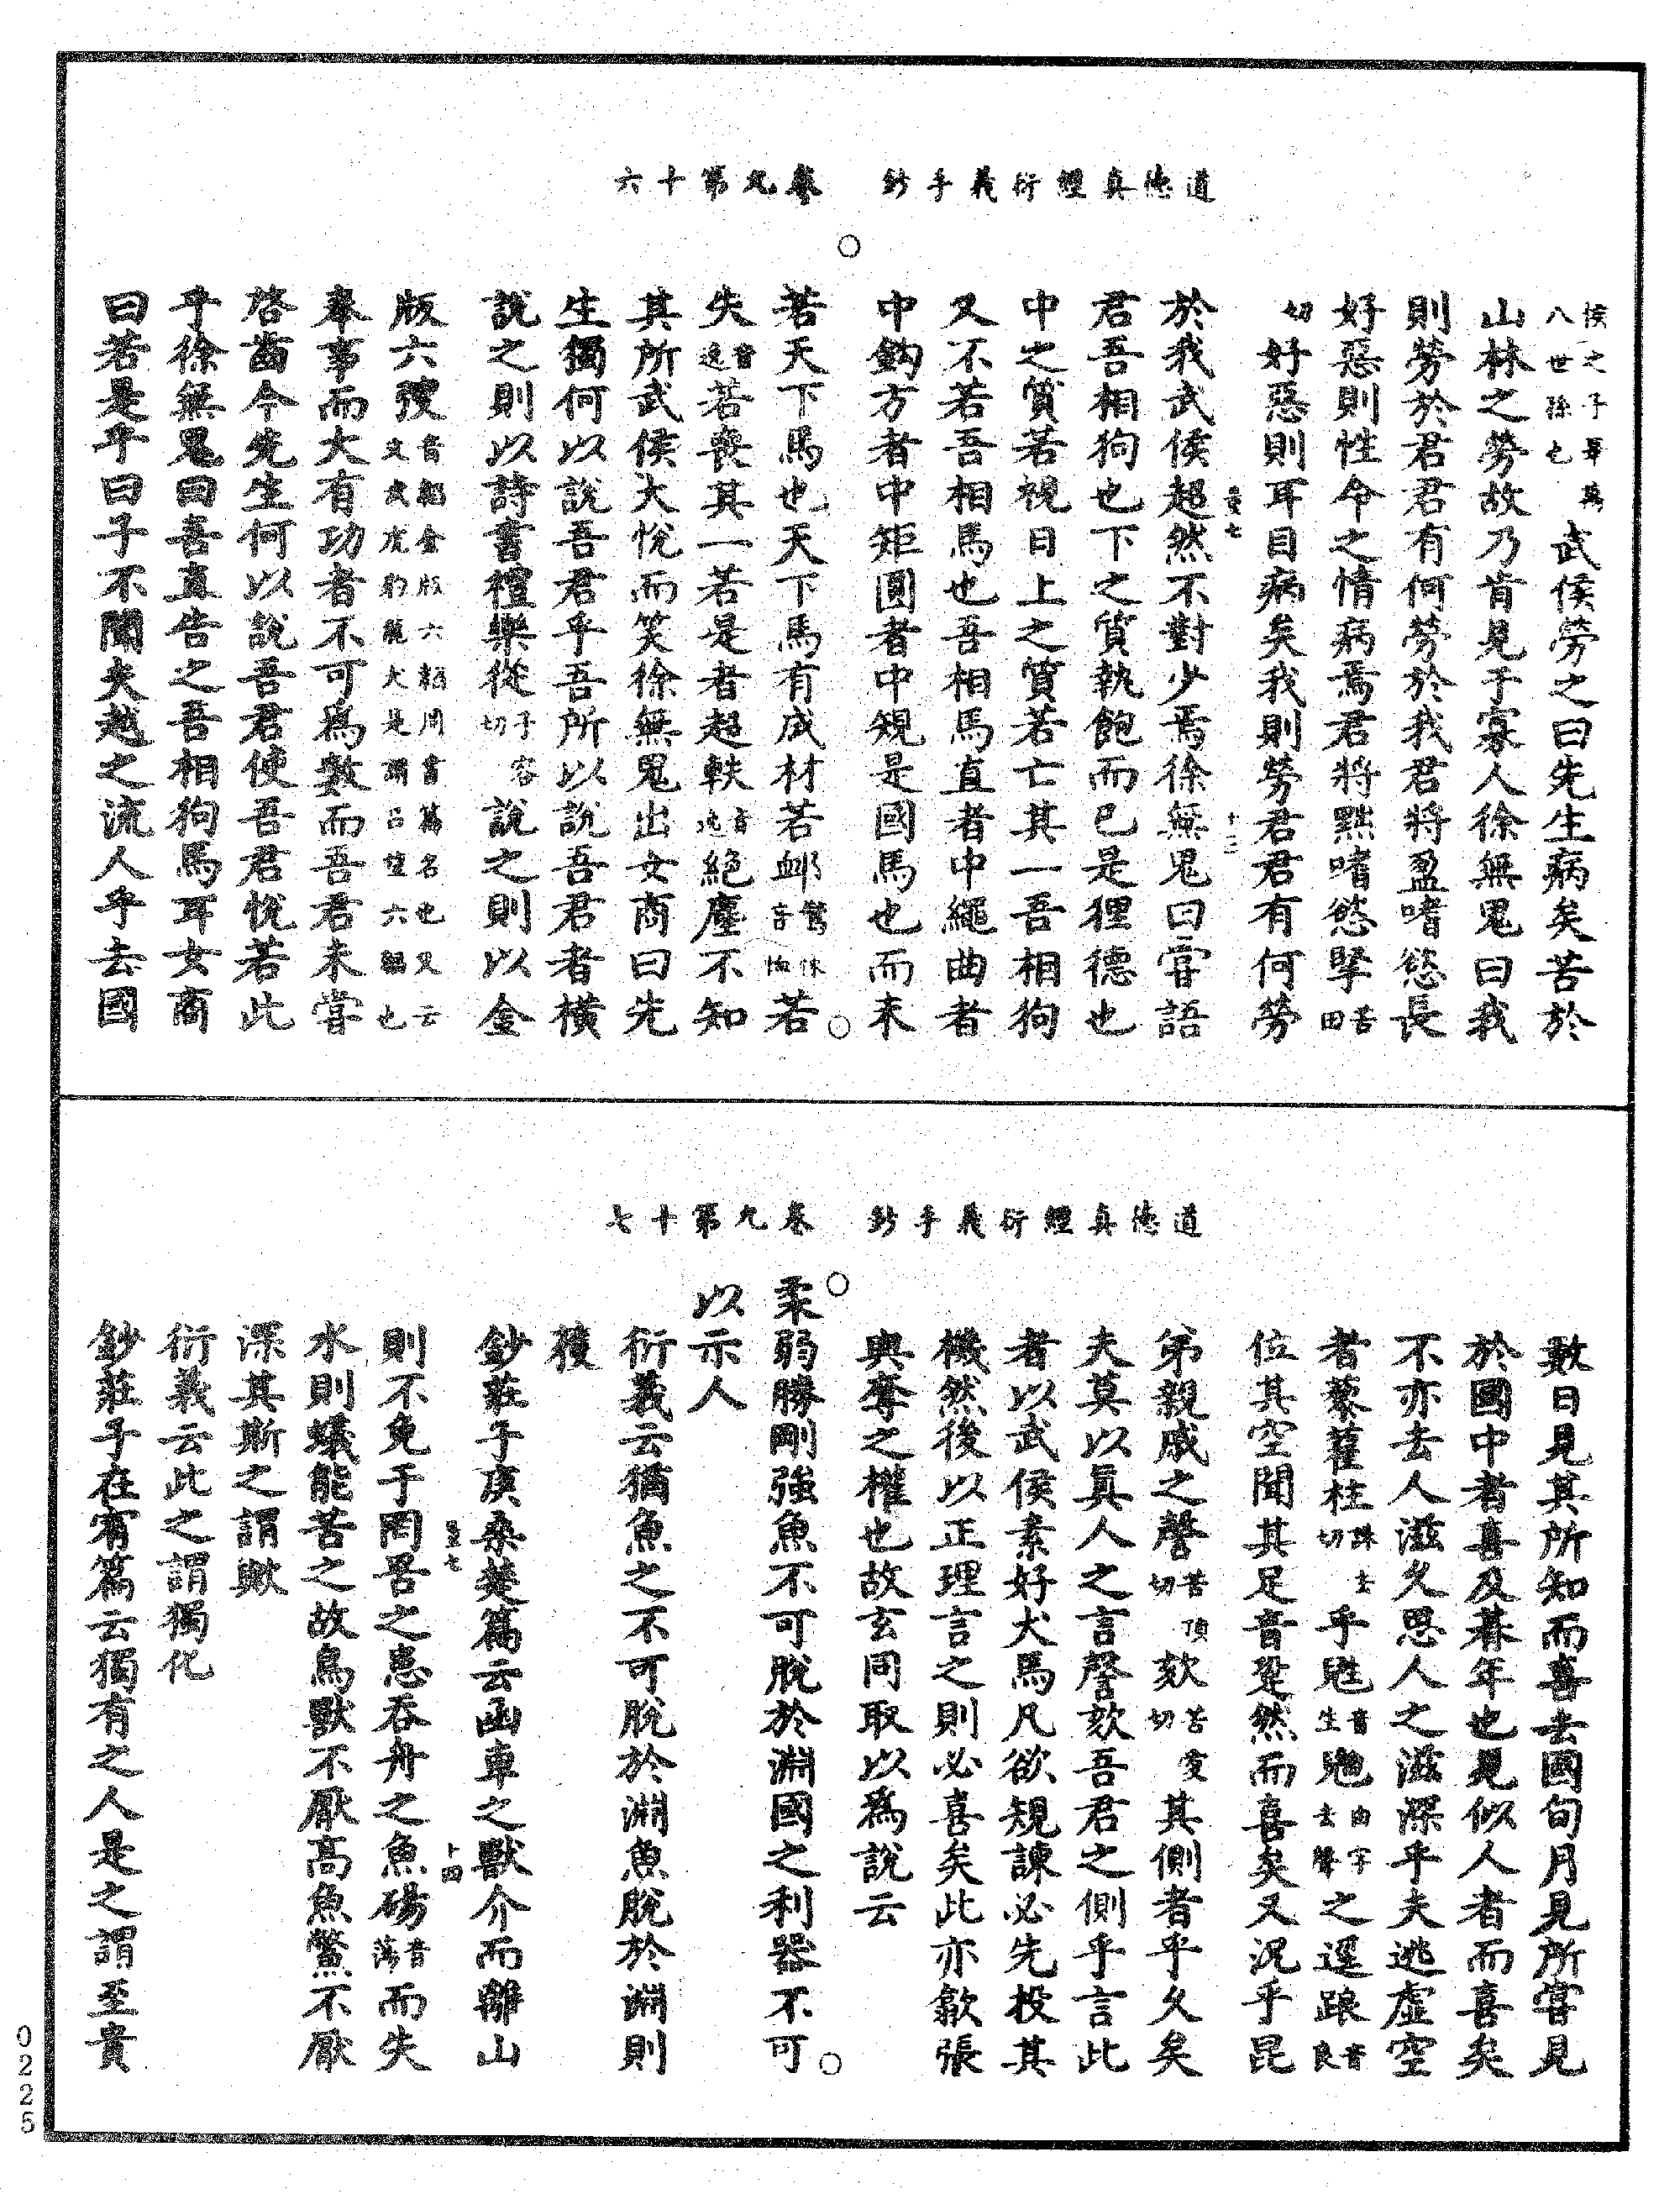 道德真經衍義手鈔　卷九第十六
侯之子畢萬八世孫也武侯勞之曰先生病矣苦於
山林之勞故乃肯見于寡人徐無鬼曰我
則勞於君君有何勞於我君將盈嗜慾長
好惡則性命之情病焉君將黜嗜慾掔苦田
切好惡則耳目病矣我則勞君君有何勞
於我武侯超然不對少焉徐無鬼曰嘗語
十三
君吾相狗也下之質執飽而已是狸德也
中之質若視日上之質若亡其一吾相狗
又不若吾相馬也吾相馬直者中繩曲者
中鈎方者中矩圓者中規是國馬也而未
若天下馬也天下馬有成材若䘏若
失音逸若喪其一若是者超軼音逸絕塵不知
其所武侯大悅而笑徐無鬼出女商曰先
生獨何以說吾君乎吾所以說吾君者橫
說之則以詩書禮樂從子容切說之則以金
版六弢音韜金版六韜周書篇名也又云文武虎豹龍犬是謂呂望六韜也
奉事而大有功者不可為數而吾君未嘗
啓齒今先生何以說吾君使吾君悅若此
乎徐無鬼曰吾直告之吾相狗馬耳女商
曰若是乎曰子不聞夫越之流人乎去國
道德真經衍義手鈔　卷九第十七
數日見其所知而喜去國旬月見所嘗見
於國中者喜及朞年也見似人者而喜矣
不亦去人滋久思人之滋深乎夫逃虛空
者藜藋柱誅主切乎鼪音生鼬由字去聲之逕踉音良
位其空聞其足音跫然而喜矣又況乎昆
弟親戚之謦苦頂切欬苦愛切其側者乎久矣
夫莫以眞人之言謦欬吾君之側乎言此
者以武侯素好犬馬凡欲規諫必先投其
機然後以正理言之則必喜矣此亦歙張
與奪之權也故玄同取以為說云
柔弱勝剛強魚不可脫於淵國之利器不可
以示人
衍義云猶魚之不可脫於淵魚脫於淵則
獲
鈔莊子庚桑楚篇云函車之獸介而離山
十四
則不免于罔罟之患吞舟之魚碭音蕩而失
水則蟻能苦之故鳥獸不厭高魚鱉不厭
深其斯之謂歟
衍義云此之謂獨化
鈔莊子在宥篇云獨有之人是之謂至貴
0225